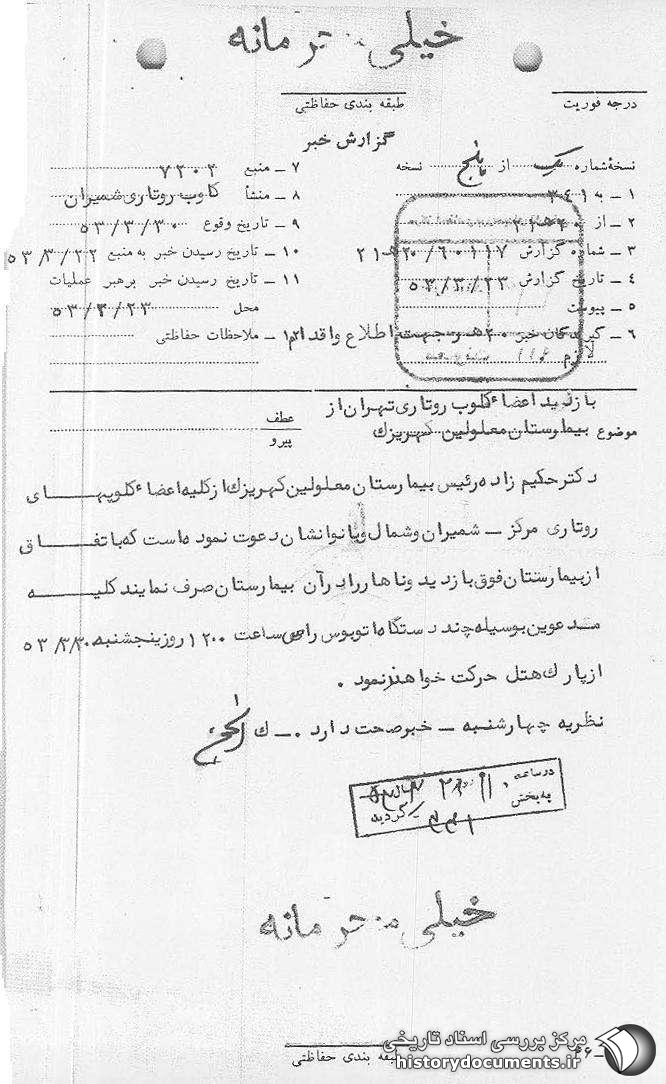 خیلی محرمانه
درجه فوریت
طبقه بندی حفاظتی
گزارش خبر
نسخهٔ شماره یک از پنج نسخه
۱ – به ۳۴۱
۲ – از
۳ – شماره گزارش
۴ – تاریخ گزارش ۵۳/۳/۲۳
۵ – پیوست
۶ – گیرندگان خبر جهت اطلاع واقدام
لازم
۷ – منبع ۷۲۰۲
۸ – منشأ کلوب روتاری شمیران
۹ – تاریخ وقوع ۵۳/۳/۳۰
۱۰ – تاریخ رسیدن خبر به منبع ۵۳/۳/۲۲
۱۱ – تاریخ رسیدن خبر برهبر عملیات
محل ۵۳/۳/۲۳
ملاحظات حفاظتی
موضوع بازدید اعضاء کلوب روتاری تهران از
بیمارستان معلولین کهریزك
عطف
پیرو
دکتر حکیم زاده رئیس بیمارستان معلولین کهریزك از کلیه اعضاء کلوپهای
روتاری مرکز – شمیران و شمال و بانوانشان دعوت نموده است که باتفاق
از بیمارستان فوق بازدید و ناهار را در آن بیمارستان صرف نمایند کلیه
مدعوین بوسیله چند دستگاه اتوبوس راس ساعت ۱۲۰۰ روز پنجشنبه ۵۳/۳/۳۰
از پارك هتل حرکت خواهند نمود .
نظریه چهارشنبه – خبر صحت دارد . – ك
در ساعت
به بخش
گردید
خیلی محرمانه
طبقه بندی حفاظتی
مرکز بررسی اسناد تاریخی
historydocuments.ir